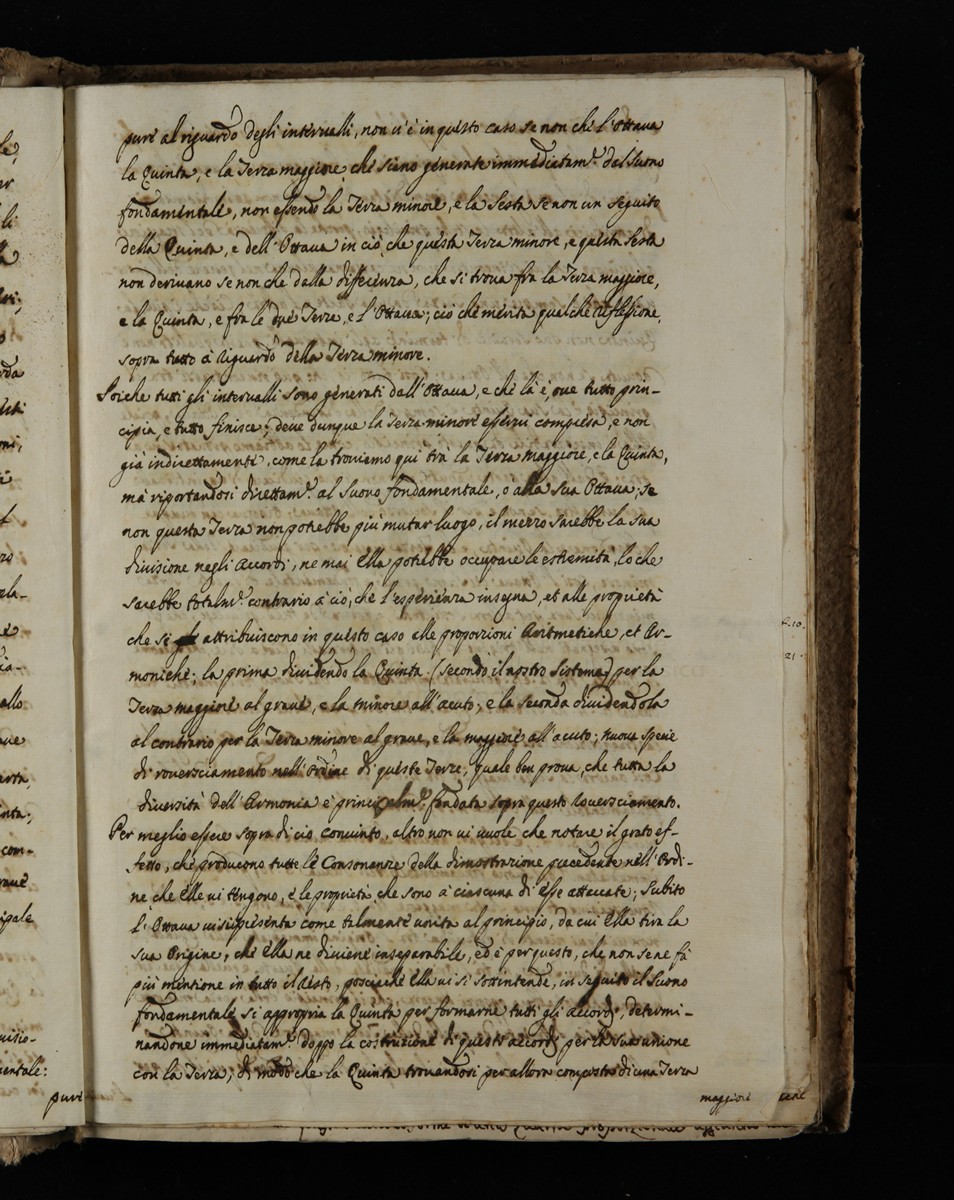 pure al riguardo degli intervalli, non v'è in questo caso se non che l'Ottava
la Quinta, e la Terza maggiore che siano generate immediatam.e dal Suono
fondamentale, non essendo la Terza minore, e la Sesta se non un seguito
della Quinta, e dell'Ottava in ciò, che questa Terza minore, e questa Sesta
non derivano se non che dalla differenza, che si trova frà la Terza maggiore,
e la Quinta, e frà le due Terze, e l'Ottava; ciò che mérita qualche riflessione,
sopra tutto à riguardo della Terza minore.
Poiche tutti gli intervalli sono generati dall'Ottava, e che là è, ove tutto prin-
cipia, e tutto finisce; deve dunque la Terza minore esservi compresa, e non
già indirettamente, come la troviamo quì trà la Terza maggiore, e la Quinta,
mà riportandosi direttam.e al Suono fondamentale, ò alla sua Ottava; se
non questa Terza non potrebbe più mutar luogo, il mezzo sarebbe la sua
divisione negli Accordi, ne mai Ella potrebbe occupare le estremità, lo che
sarebbe totalm.e contrario à ciò, che l'esperienza insegna, et alle proprietà
che si attribuiscono in questo caso alle proporzioni Aritmetiche, et Ar-
moniche; la prima dividendo la Quinta (secondo il nostro Sistema) per la
Terza maggiore al grave, e la minore all'acuto, e la seconda dividendola
al contrario per la Terza minore al grave, e la maggiore all'acuto; nuova specie
di roversciamento nell'Ordine di queste Terze, quale ben prova, che tutta la
diversità dell'Armonia è principalm.e fondata sopra questo roversciamento.
Per meglio essere sopra di ciò convinto, altro non vi vuole che notare il grato ef-
fetto, che producono tutte le Consonanze della dimostrazione precedente nell'Ordi-
ne, che elle vi tengono, e le proprietà, che sono à ciascuna di esse attaccate; Subito
l'Ottava vi si ripresenta come talmente unita al principio, da cui Ella tira la
sua Origine, che Ella ne diviene inseparabile, ed è per questo, che non se ne fà
più mentione in tutto il resto, posciache Ella vi si sottintende, in seguito il Suono
fondamentale si appropria la Quinta per formarne tutti gli Accordi, determi-
nandone immediatam.e doppo la costruzione di questi accordi per la sua unione
con la Terza; di modo che la Quinta trovandosi per allora composta di una Terza
maggiore